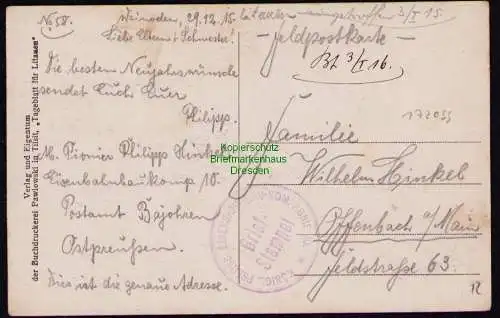 No 58. Meinoden, 29.12.15. Litauen eingetroffen 3/I 15.
Liebe Eltern + Schwester!
Die besten Neujahrswünsche
sendet Euch Euer
Philipp.
M. Pionier Philipp Hinkel
Eisenbahnbaukomp 10.
Postamt Bajohren
Ostpreußen.
Dies ist die genaue Adresse.
Verlag und Eigentum
der Buchdruckerei Pawlowski in Tilsit, „Tageblatt für Litauen"
- Feldpostkarte -
Bt 3/I 16.
172033
Familie
Wilhelm Hinkel
Offenbach a/Main
Feldstraße 63.
12
Brief-
Stempel
Kopierschutz
Briefmarkenhaus
Dresden